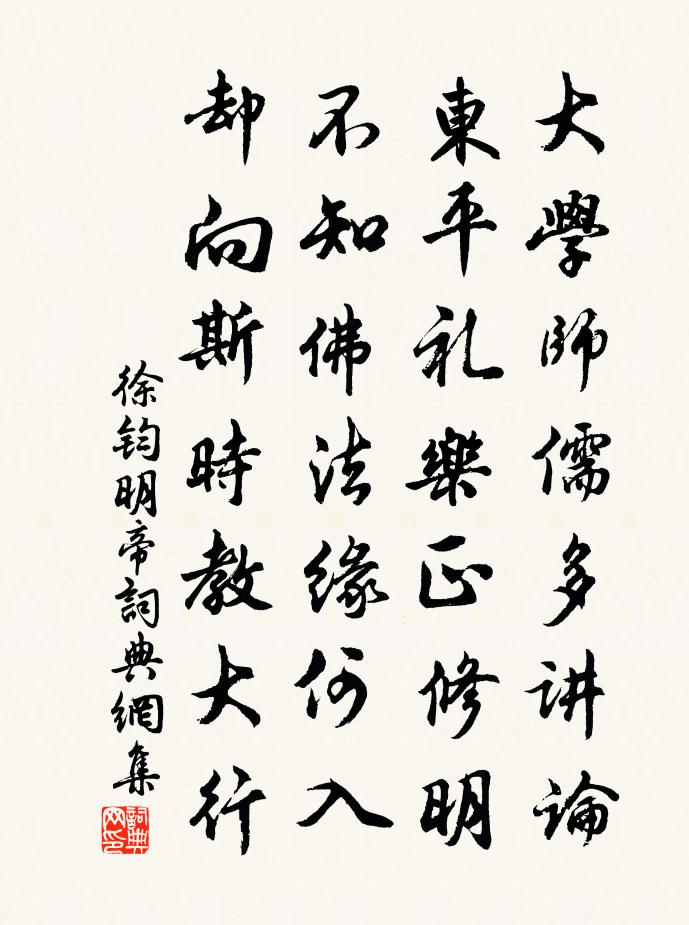 大學師儒多讲論
東平礼樂正修明
不知佛法緣何入
却向斯時教大行
徐鈞明帝詞典網集
詞典网印